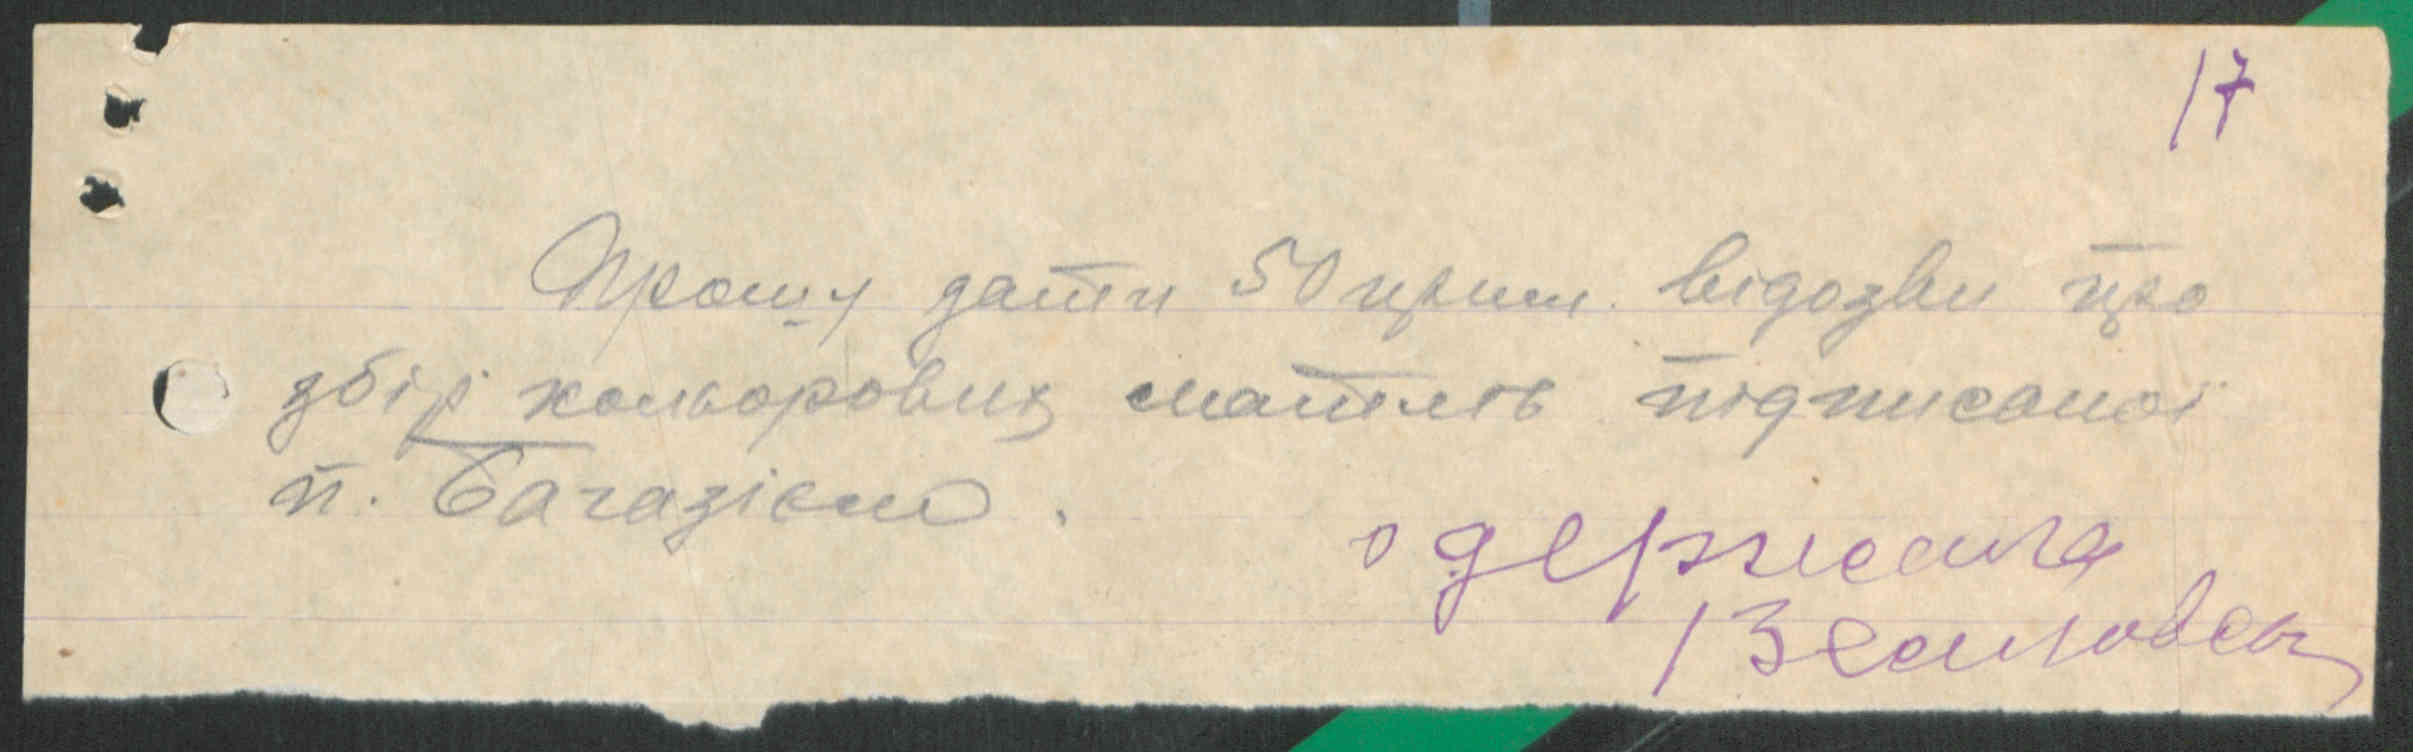 17
Прошу дати 50 прим. відозви про
збір кольорових металів підписаної
п. Багазієм.
одержала